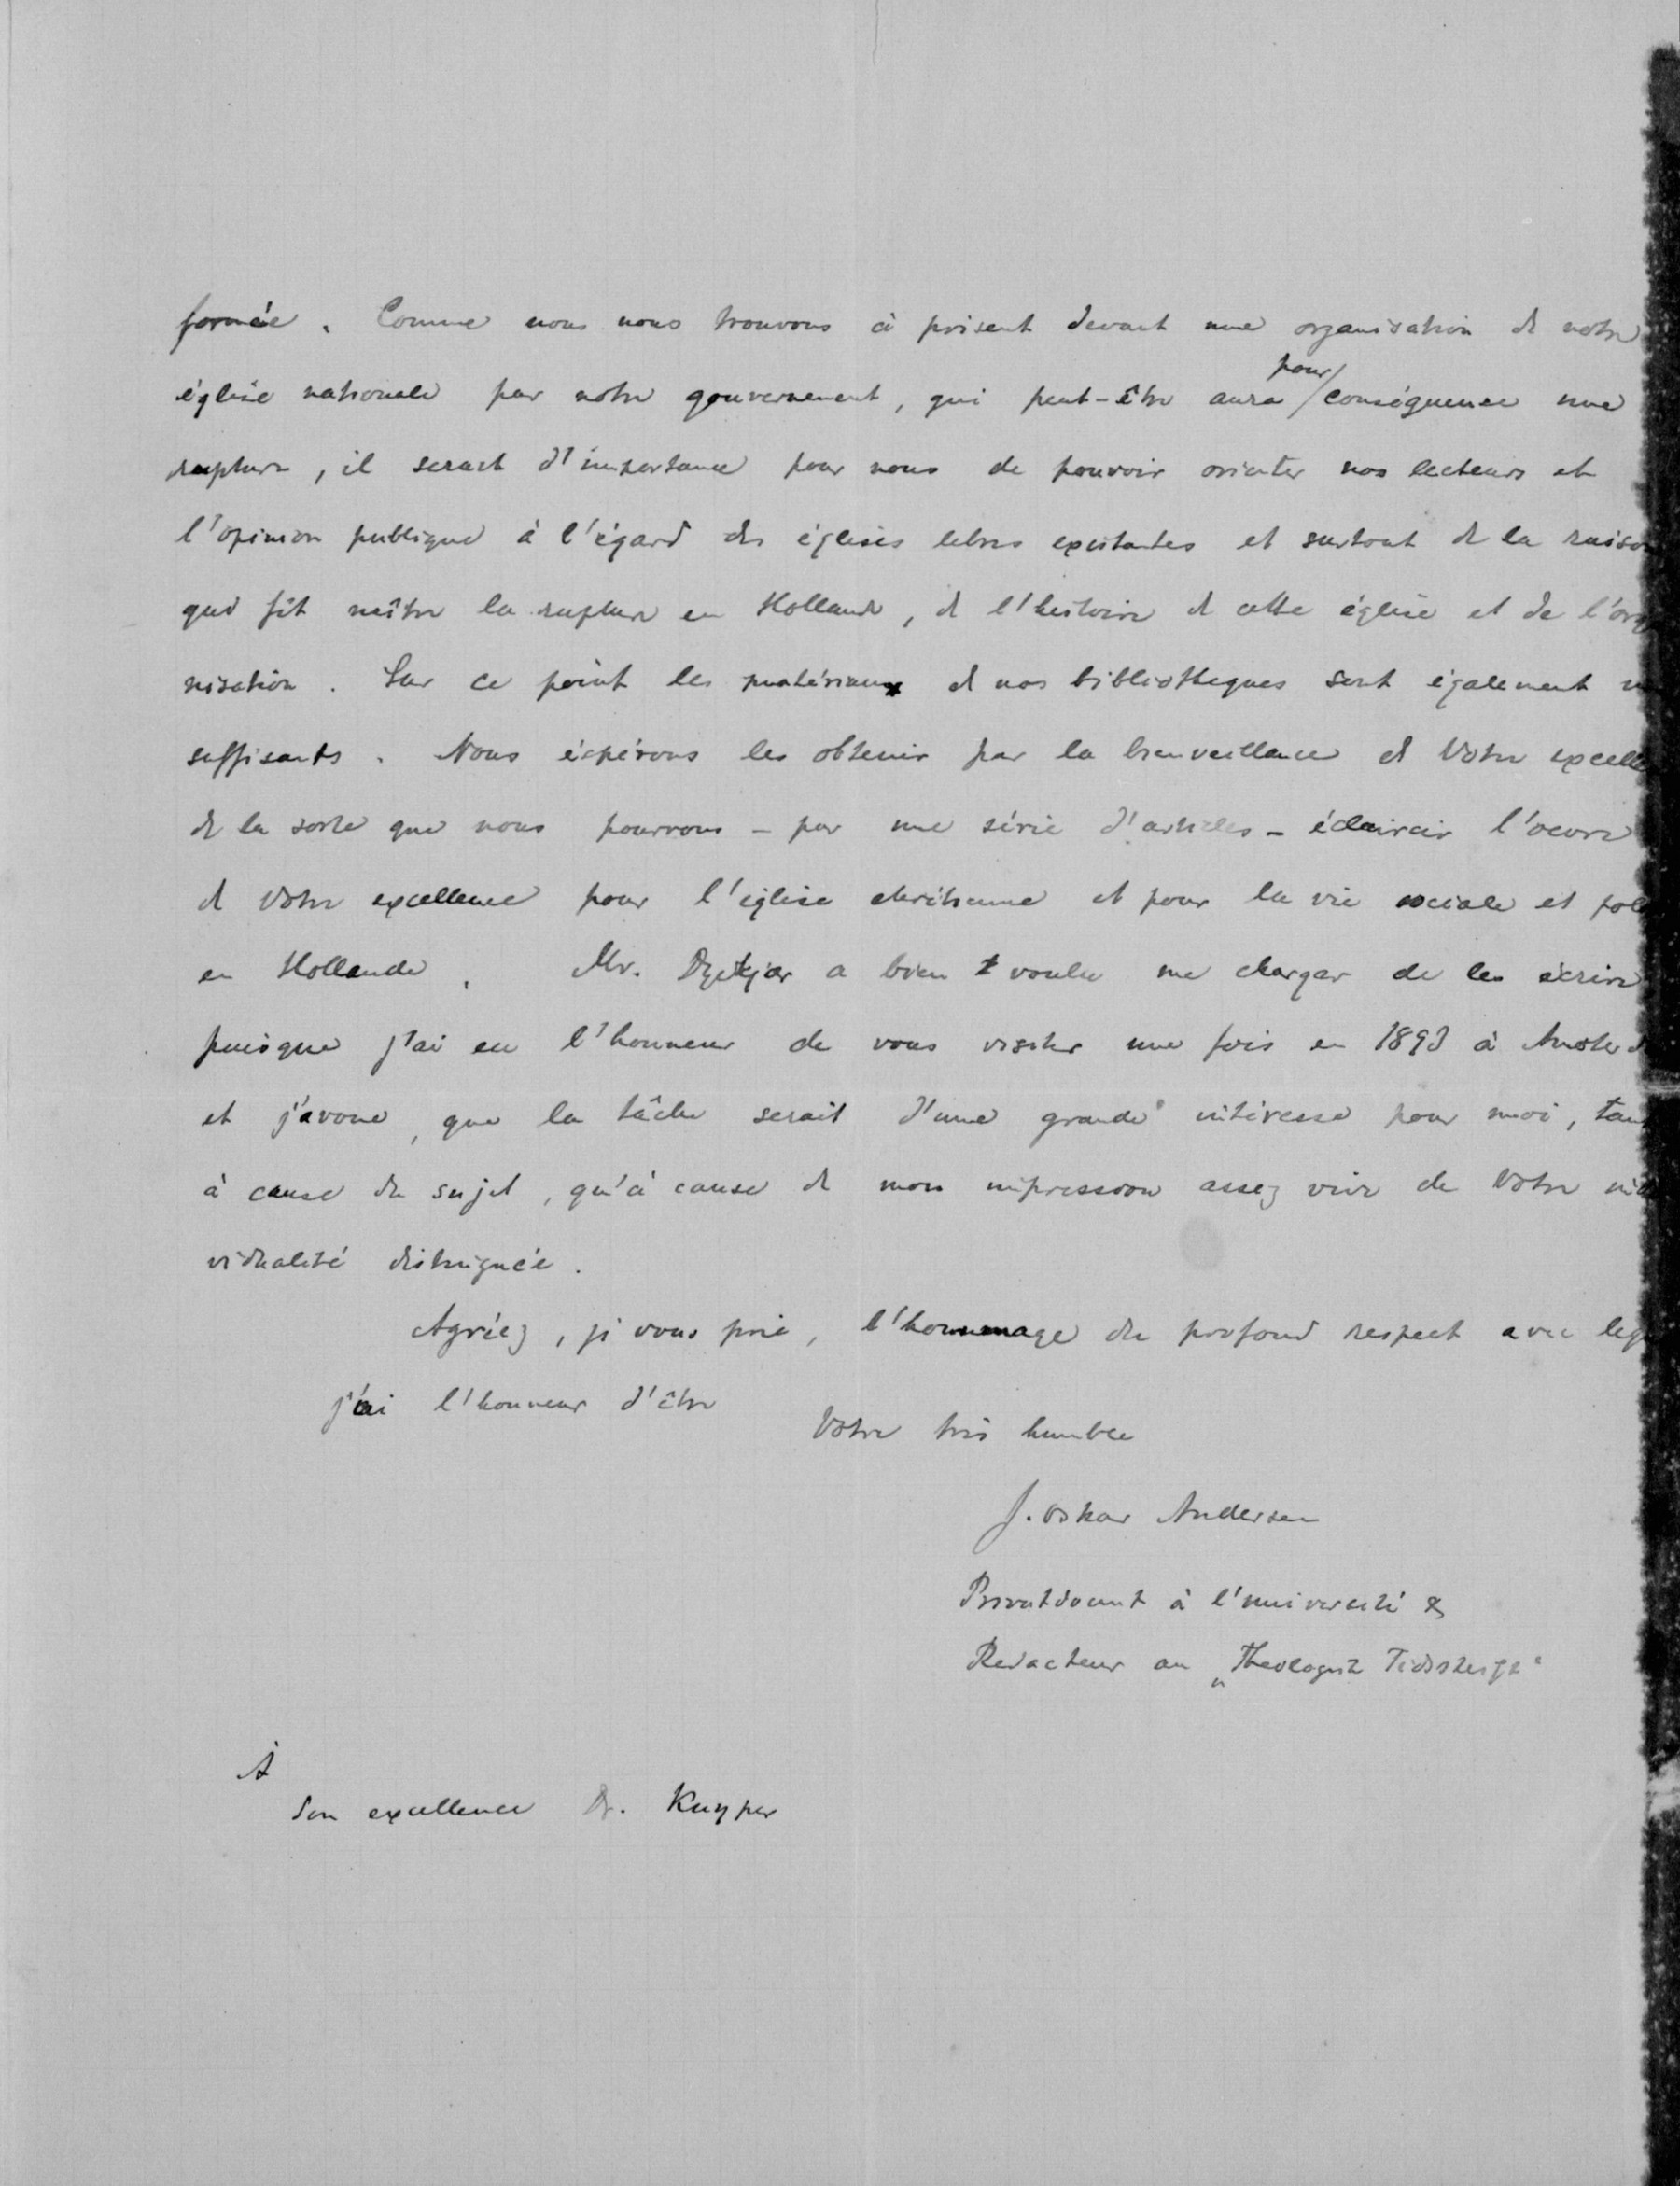 formée. Comme nous nous trouvons à présent devant une organisation de notre
église nationale par notre gouvernement, qui peut-être aura pour conséquense une
rupture, il serait d'importance pour nous de pouvoir orienter nos lecteurs et
l'opinion publique à l'égard des églises libres existantes et surtout de la raison
qui fit naître la rupture en Hollande, de l'histoire de cette église et de l'orga
nisation. Sur ce point les matériaux de nos bibliotheques sont également
suffisants. Nous éspérons les obtenir par la bienveillance de Votre excelle
de la sorte que nous pourrons - par une série d'articles - éclaircir l'oeuvre
de Votre excellence pour l'église chrétienne et pour la vie sociale et pol
en Hollande. Mr. a bien voulu me charger de les écrire
puisque j'ai eu l'honneur de vous visiter une fois en 1893 à Amsterd
et j'avoue, que la tâche serait d'une grande intéresse pour moi, tan
à cause du sujet, qu'à cause de mon impression assez vive de Votre ind
vidualité distinguée.
Agréez, je vous prie, l'hommage du profond respect avec leq
j'ai l'honneur d'être
Votre très humble
J. Oskar Andersen
Privatdocent à l'université &
Redacteur au „Theologisk Tidsskrift"
À
Son excellence Dr. Kuyper